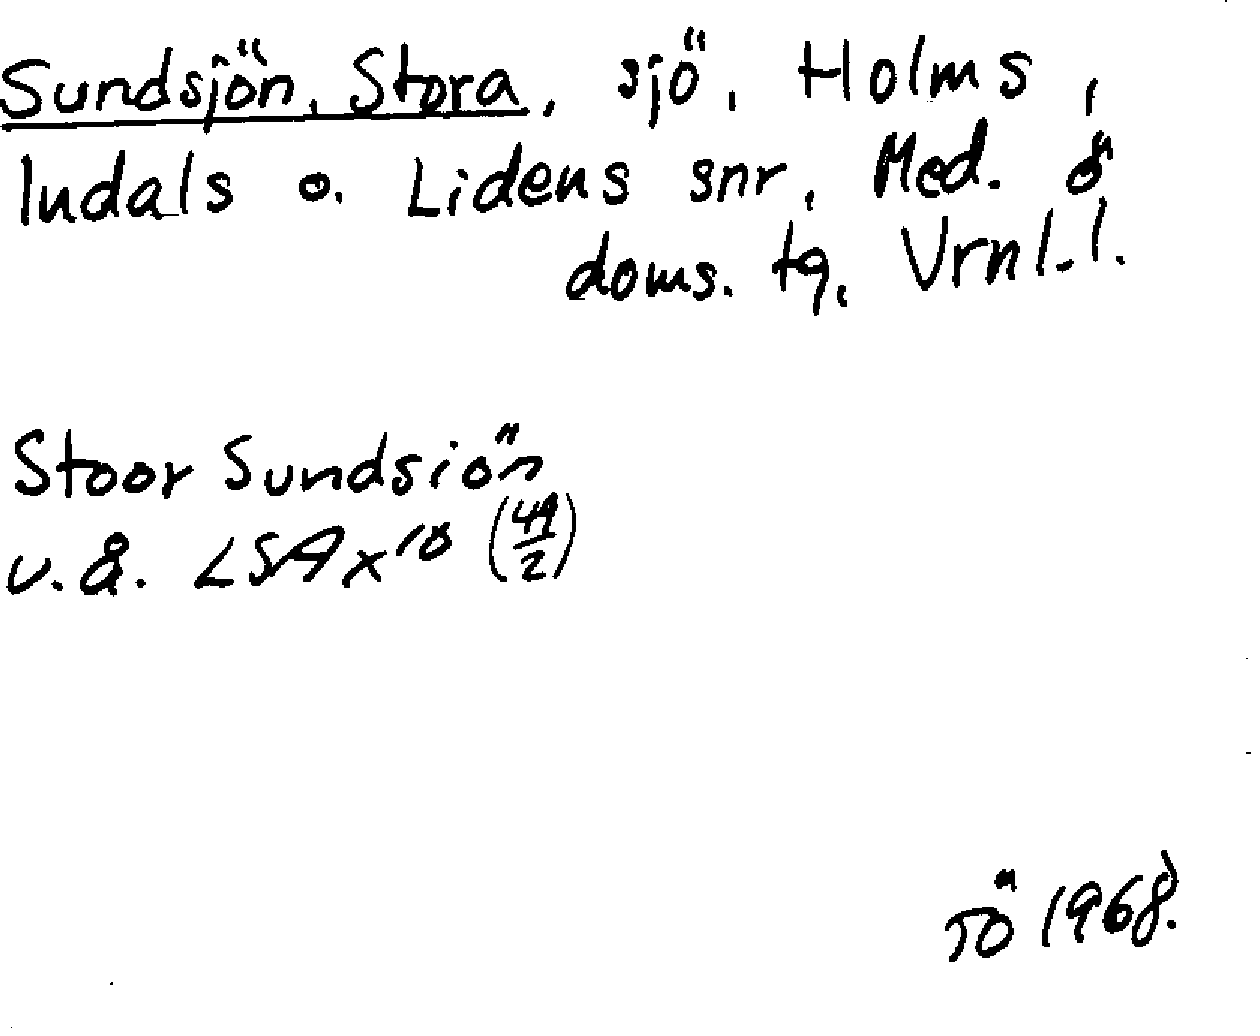 Sundsjön, Stora, sjö, Holms,
Indals o. Lidens snr, Med. ö
doms. tg, Vrnl. l.
Stoor Sundsiön
u.å. LSA x 18 (49/2)
TÖ 1968.